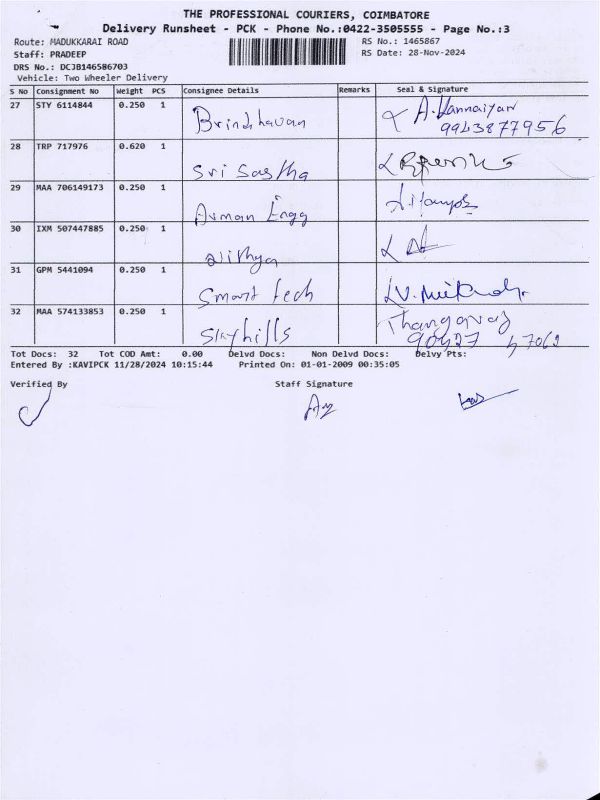 THE PROFESSIONAL COURIERS, COIMBATORE
Delivery Runsheet - PCK - Phone No.:0422-3505555 - Page No.:3
Route: MADUKKARAI ROAD
RS No.: 1465867
Staff: PRADEEP
RS Date: 28-Nov-2024
DRS No.: DCJB146586703
Vehicle: Two Wheeler Delivery
S No Consignment No Weight PCS Consignee Details Remarks Seal & Signature
27 STY 6114844 0.250 1 Brindhavan A. Kannaiyan
9943877956
28 TRP 717976 0.620 1 Sri Sastha
29 MAA 706149173 0.250 1 Arman Engg
30 IXM 507447885 0.250 1 Nithya
31 GPM 5441094 0.250 1 Smart tech
32 MAA 574133853 0.250 1 Skyhills Thangaraj
Tot Docs: 32 Tot COD Amt: 0.00 Delvd Docs: Non Delvd Docs: Delvy Pts:
Entered By :KAVIPCK 11/28/2024 10:15:44 Printed On: 01-01-2009 00:35:05
Verified By Staff Signature